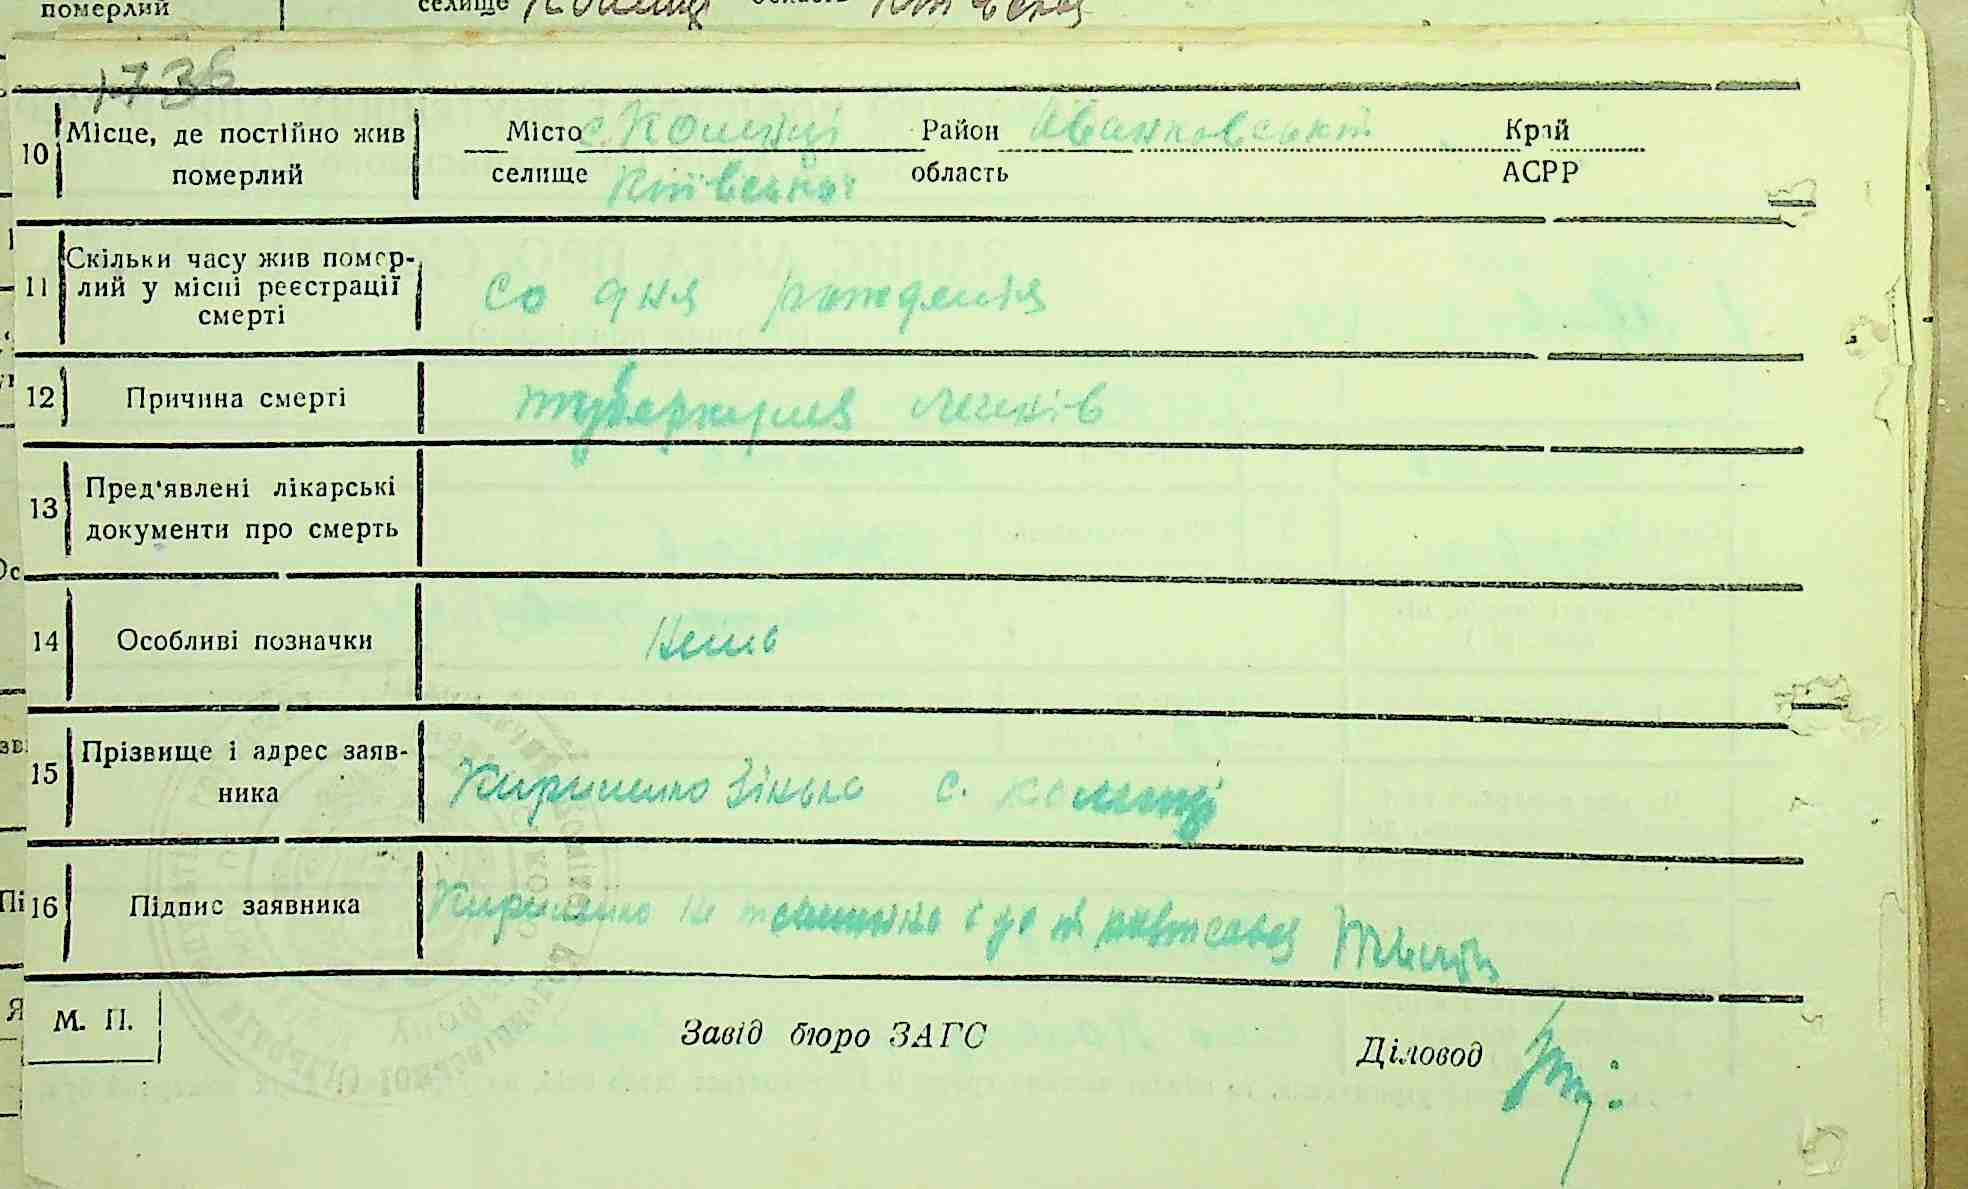 померлий селище область
1736
10 Місце, де постійно жив померлий Місто с. Коленці Район Іванковський Край
селище Київської область АСРР
11 Скільки часу жив помер-
лий у місці реєстрації
смерті со дня рождения
12 Причина смерті туберкулез легенів
13 Пред'явлені лікарські
документи про смерть
14 Особливі позначки
15 Прізвище і адрес заяв-
ника Кириленко Зінька с. Коленці
16 Підпис заявника Кириленко
М. П.
Завід бюро ЗАГС
Діловод